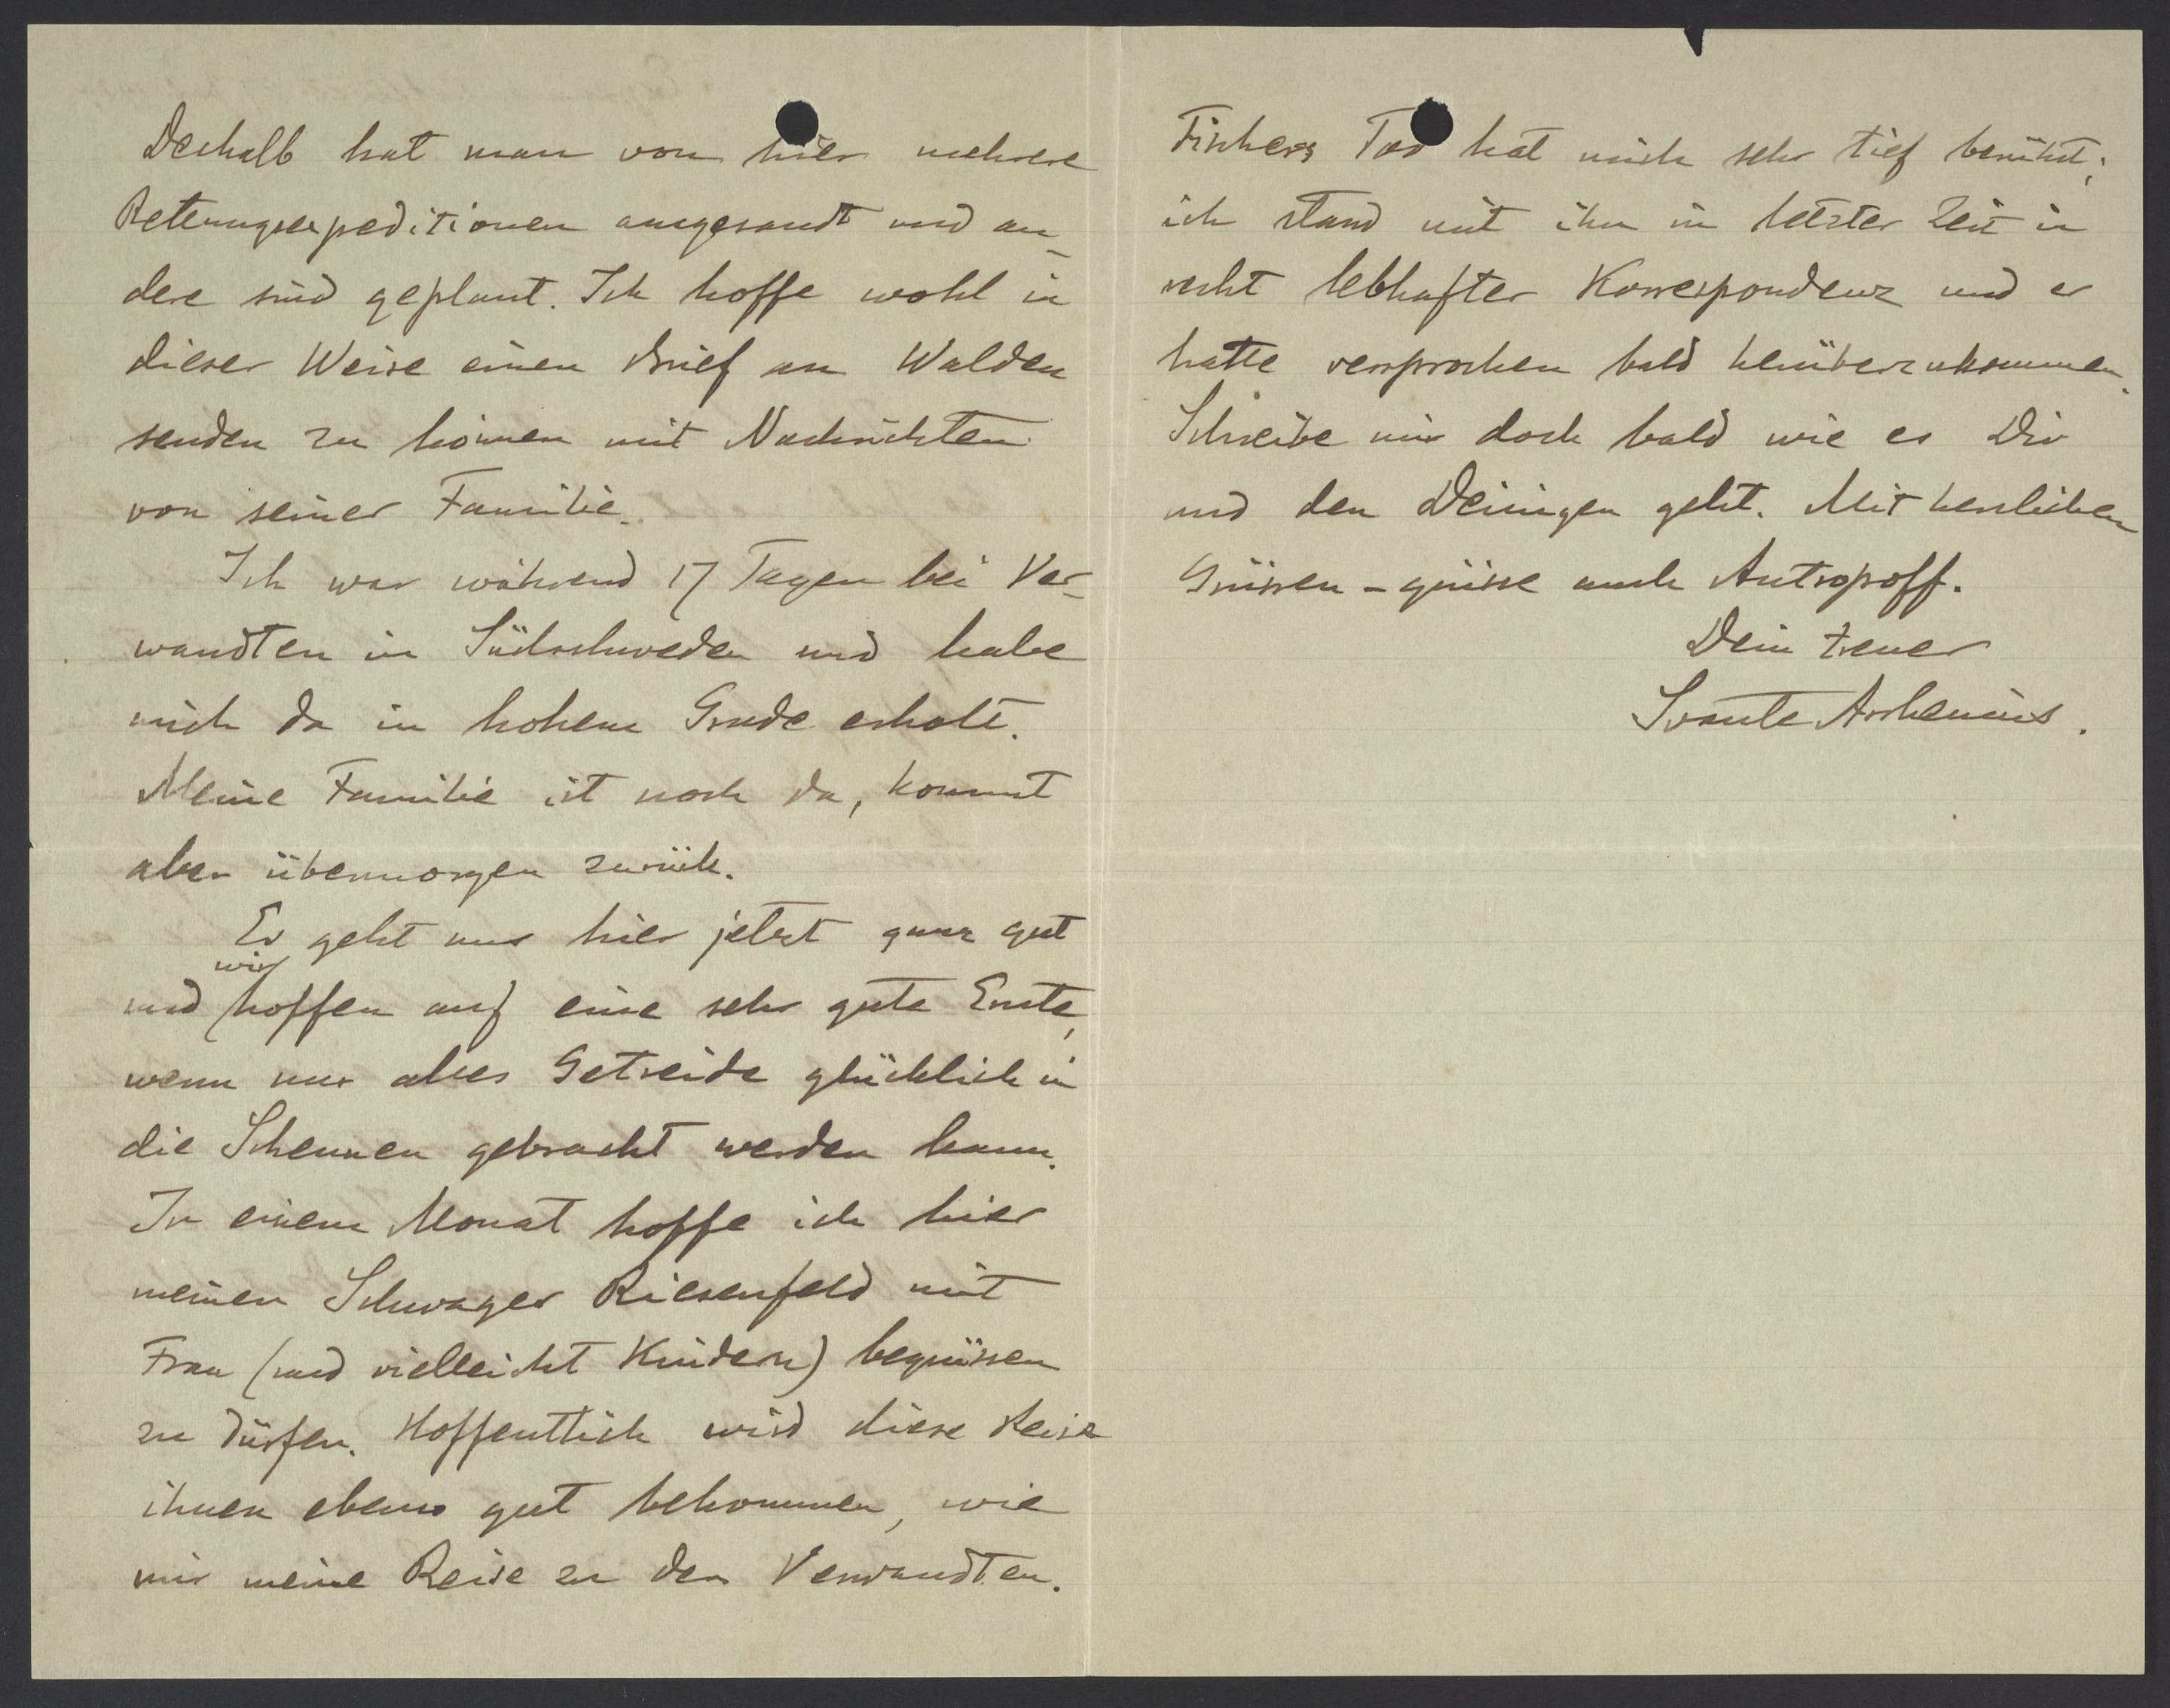 Deshalb hat man von hier mehrere
Retungsexpeditionen ausgesandt und an-
dere sind geplant. Ich hoffe wohl in
dieser Weise einen Brief an Walden
senden zu können mit Nachrichten
von seiner Familie.
Ich war während 17 Tagen bei Ver-
wandten in Südschweden und habe
mich da in hohem Grade erholt.
Meine Familie ist noch da, kommt
aber übermorgen zurück.
Es geht uns hier jetzt ganz gut
und wir hoffen auf eine sehr gute Ernte,
wenn nur alles Getreide glücklich in
die Scheunen gebracht werden kann.
In einem Monat hoffe ich hier
meinen Schwager Riesenfeld mit
Frau (und vielleicht Kindern) begrüssen
zu dürfen. Hoffentlich wird diese Reise
ihnen ebenso gut bekommen, wie
mir meine Reise zu den Verwandten.
Fischers Tod hat mich sehr tief berührt;
ich stand mit ihm in letzter Zeit in
recht lebhafter Korrespondenz und er
hatte versprochen bald herüberzukommen.
Schreibe mir doch bald wie es Dir
und den Deinigen geht. Mit herzlichen
Grüssen - grüsse auch Antropoff.
Dein treuer
Svante Arrhenius.